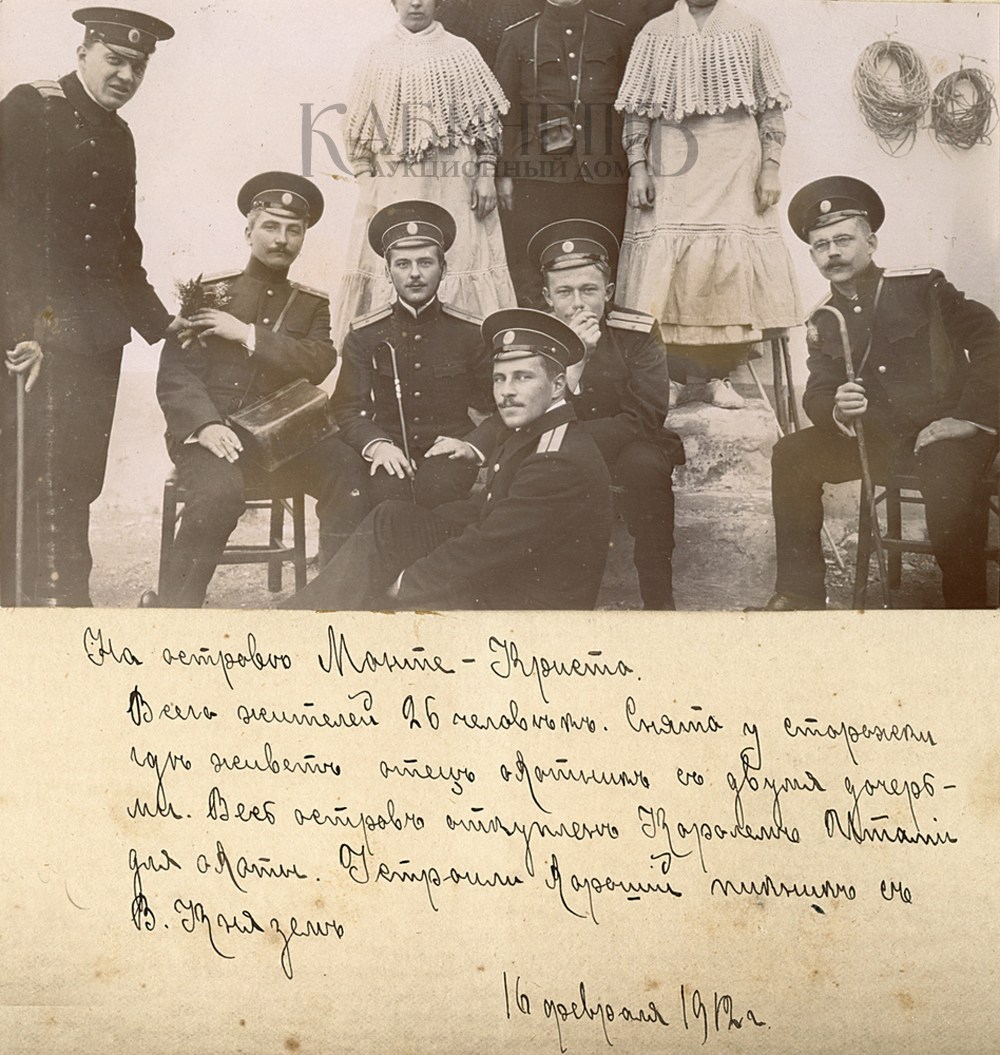 КАБИНЕТЪ
АУКЦИОННЫЙ ДОМ
На островѣ Монте-Кристо.
Всего жителей 26 человѣкъ. Снято у сторожки
гдѣ живетъ отецъ охотникъ съ двумя дочерь-
ми. Весь островъ откупленъ Королемъ Италiи
для охоты. Устроили хорошiй пикникъ съ
В. Княземъ
16 февраля 1912 г.